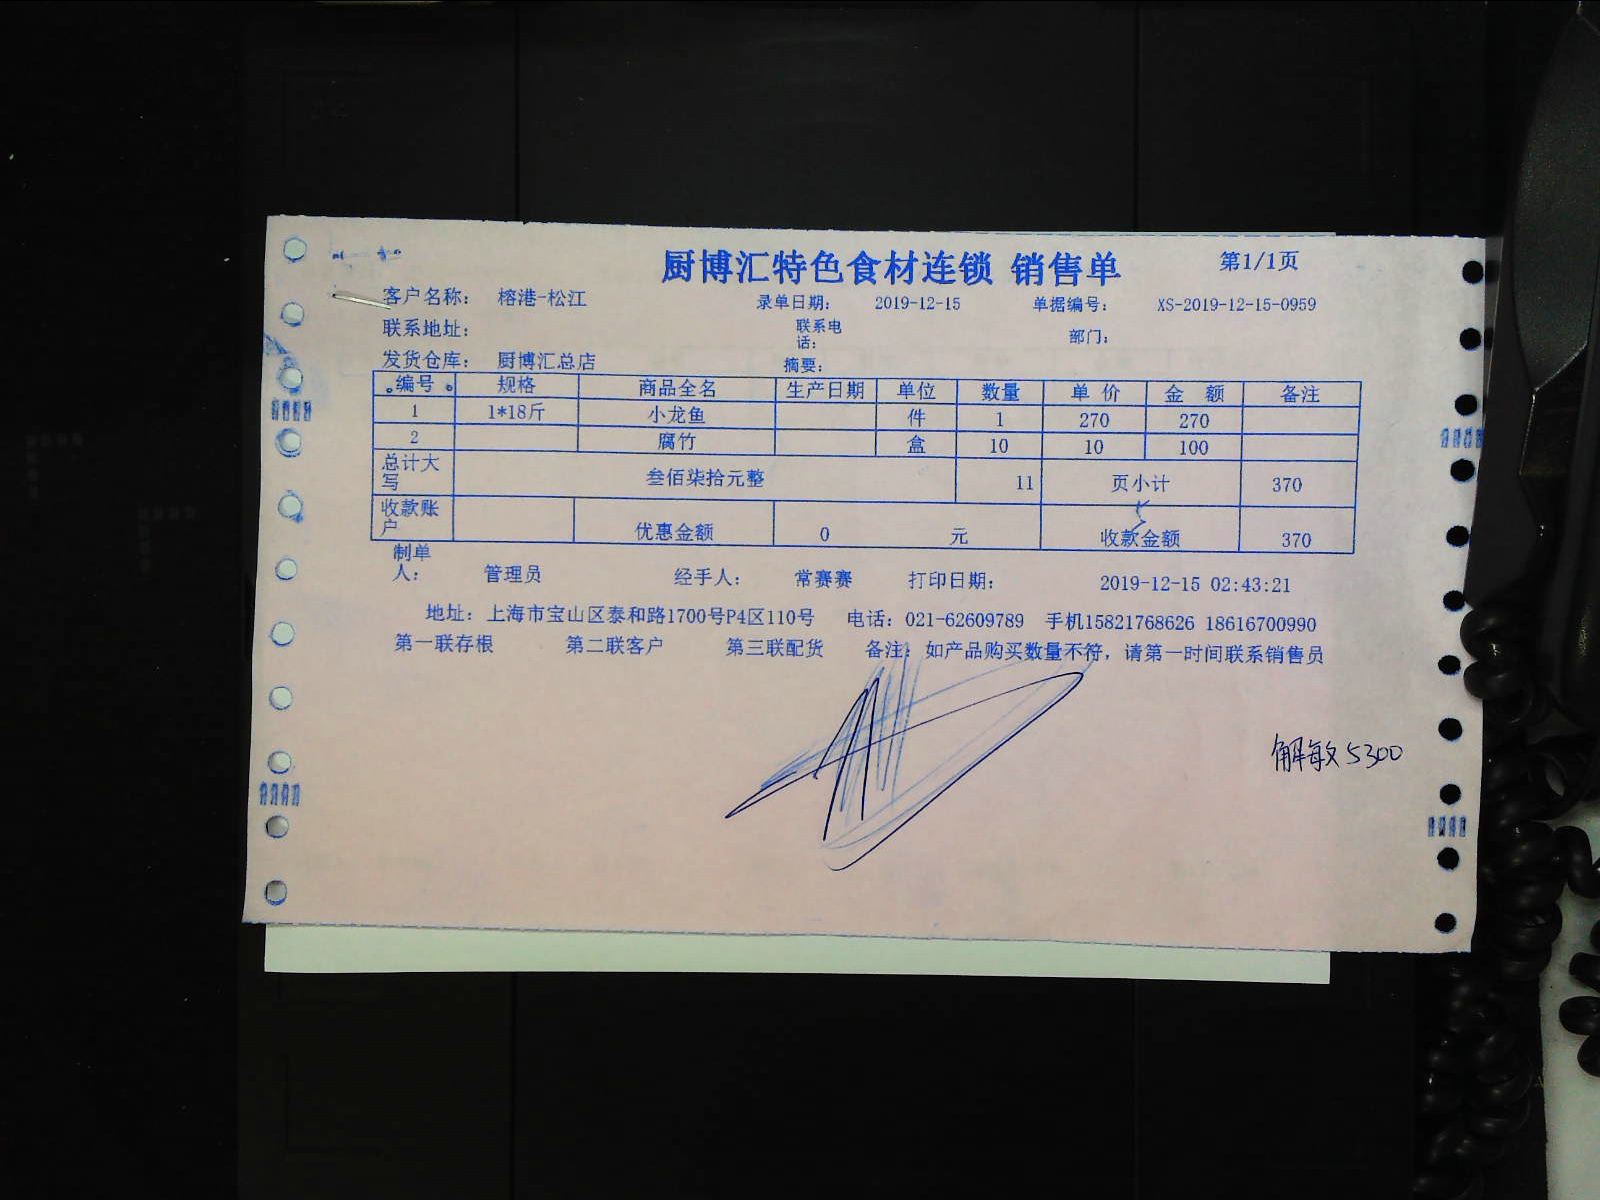 厨博汇特色食材连锁 销售单 第1/1页
客户名称： 榕港-松江 录单日期： 2019-12-15 单据编号： XS-2019-12-15-0959
联系地址： 联系电话： 部门：
发货仓库： 厨博汇总店 摘要：
编号 规格 商品全名 生产日期 单位 数量 单 价 金 额 备注
1 1*18斤 小龙鱼 件 1 270 270
2 腐竹 盒 10 10 100
总计大写 叁佰柒拾元整 11 页小计 370
收款账户 优惠金额 0 元 收款金额 370
制单人： 管理员 经手人： 常赛赛 打印日期： 2019-12-15 02:43:21
地址：上海市宝山区泰和路1700号P4区110号 电话：021-62609789 手机15821768626 18616700990
第一联存根 第二联客户 第三联配货 备注：如产品购买数量不符，请第一时间联系销售员
解敏5300